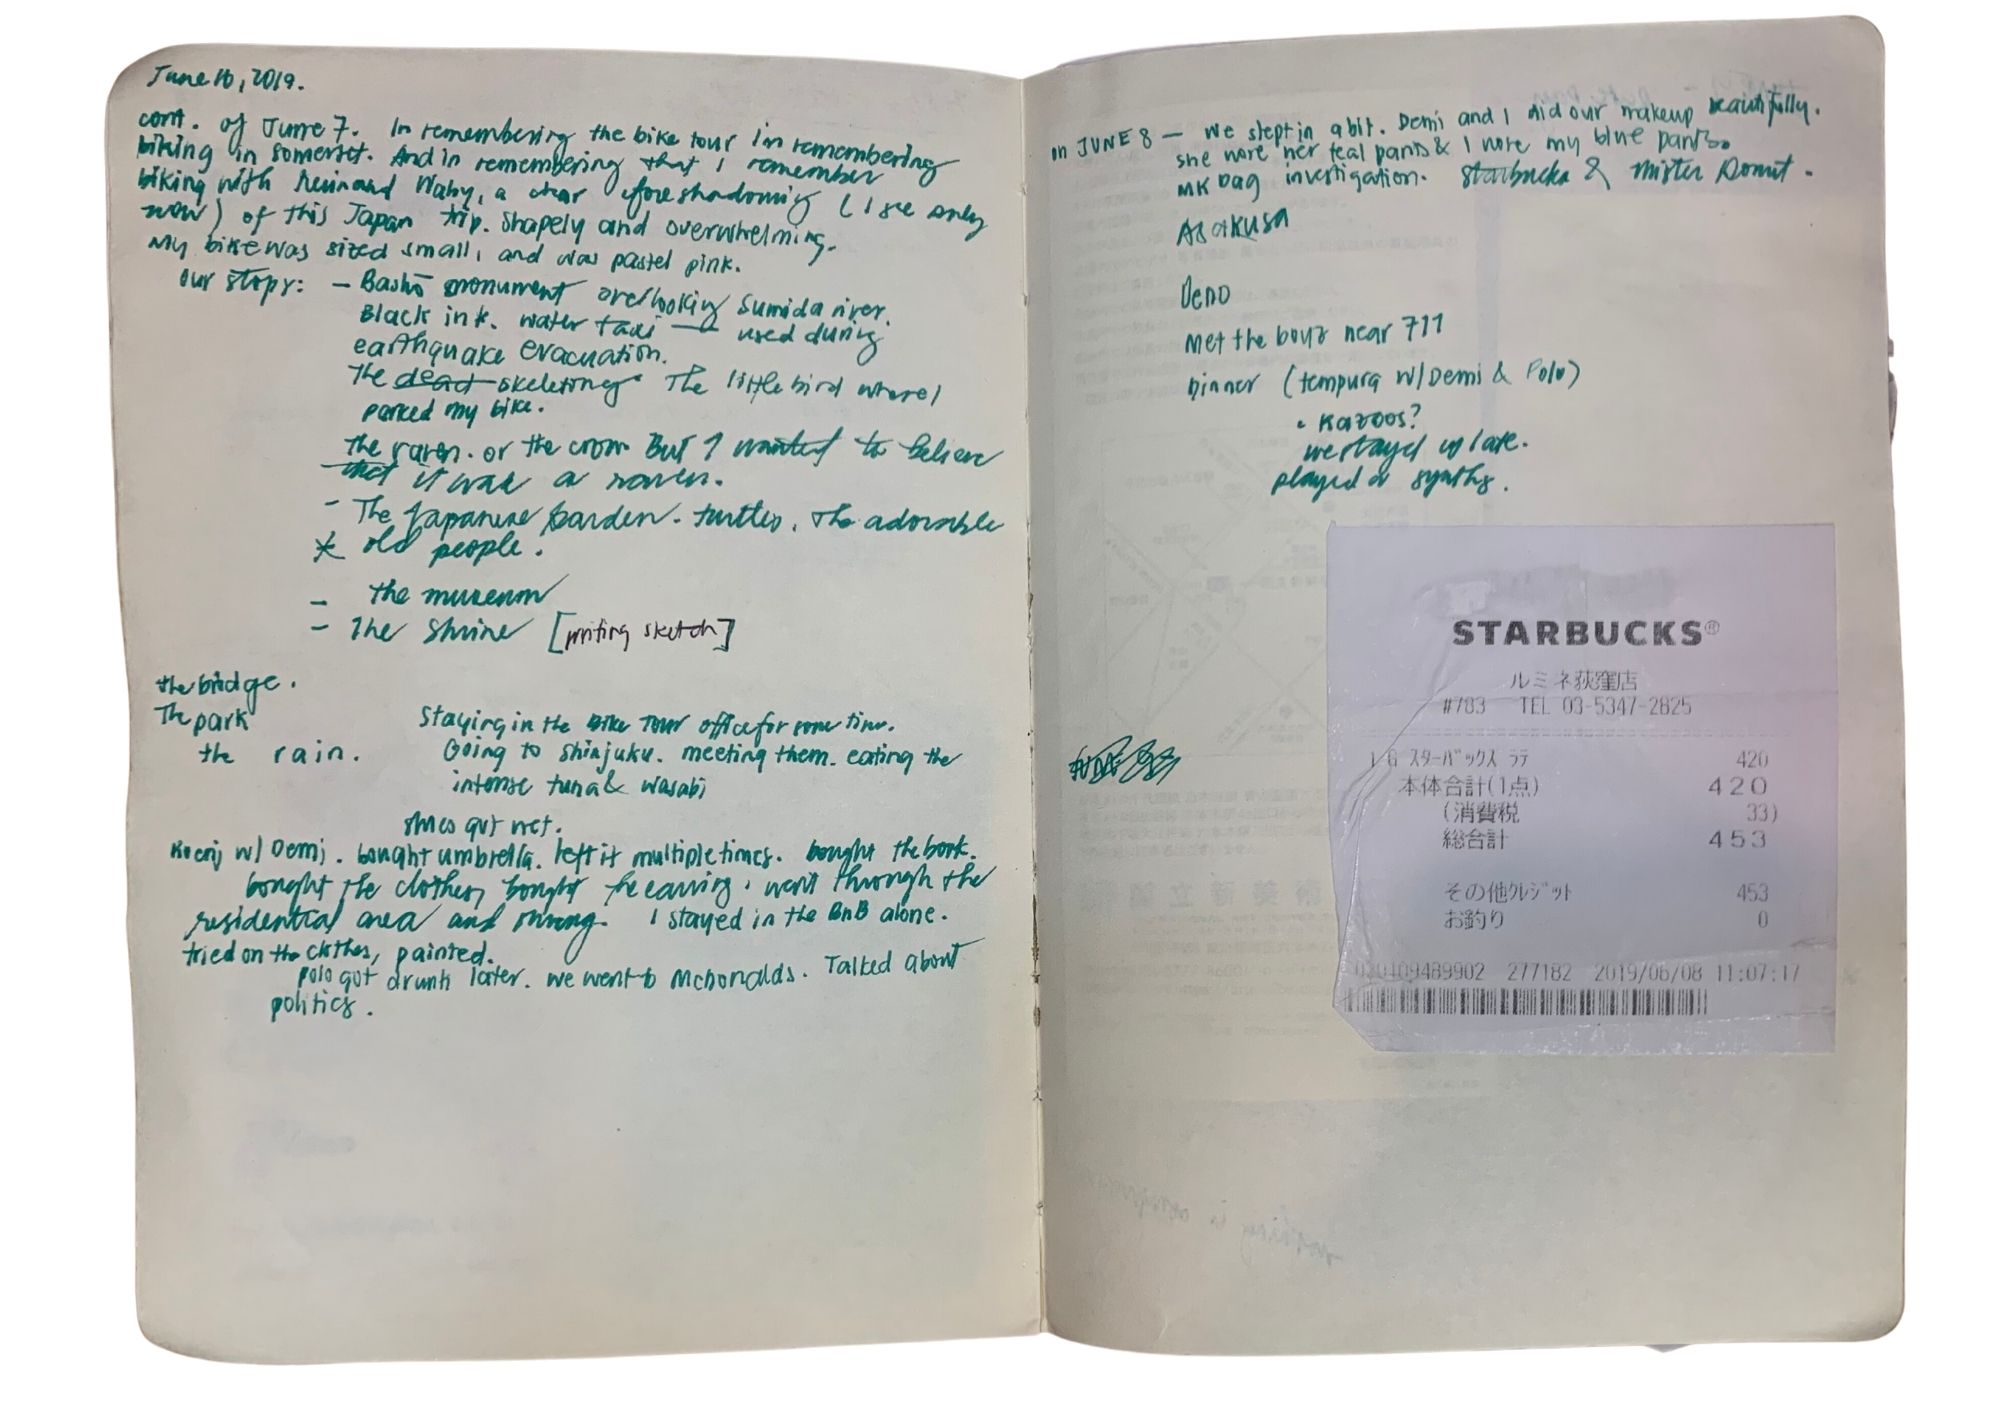 June 10, 2019.
cont. of June 7. In remembering the bike tour im remembering
biking in somerset. And in remembering that I remember
biking with and Waby, a clear foreshadowing (I see only
now) of this Japan trip. Shapely and overwhelming.
My bike was sized small, and was pastel pink.
our stops: — Bashō monument overlooking Sumida river.
Black ink. water taxi — used during
earthquake evacuation.
The dead skeletons. The little bird where I
parked my bike.
the raven. or the crow. But I wanted to believe
that it was a raven.
- The Japanese Garden. turtles. The adorable
* old people.
- the museum
- The Shrine [writing sketch]
the bridge.
The park
the rain.
Staying in the Bike Tour office for some time.
Going to Shinjuku. meeting them. eating the
intense tuna & wasabi
shoes got wet.
Koenji w/ Demi. bought umbrella. left it multiple times. bought the book.
bought the clothes, bought the earring. went through the
residential area and
I stayed in the BnB alone.
tried on the clothes, painted.
polo got drunk later. we went to McDonalds. Talked about
politics.
on JUNE 8 — We slept in a bit. Demi and I did our makeup beautifully.
she wore her teal pants & I wore my blue pants.
MK bag investigation. Starbucks & Mister Donut.
Asakusa
Ueno
Met the boys near 711
Dinner (tempura w/Demi & Polo)
• Kazoos?
we stayed up late.
played a synths.
STARBUCKS®
ルミネ荻窪店
#783 TEL 03-5347-2825
1 G スターバックス ラテ 420
本体合計(1点) 420
(消費税 33)
総合計 453
その他クレジット 453
お釣り 0
020109489902 277182 2019/06/08 11:07:17